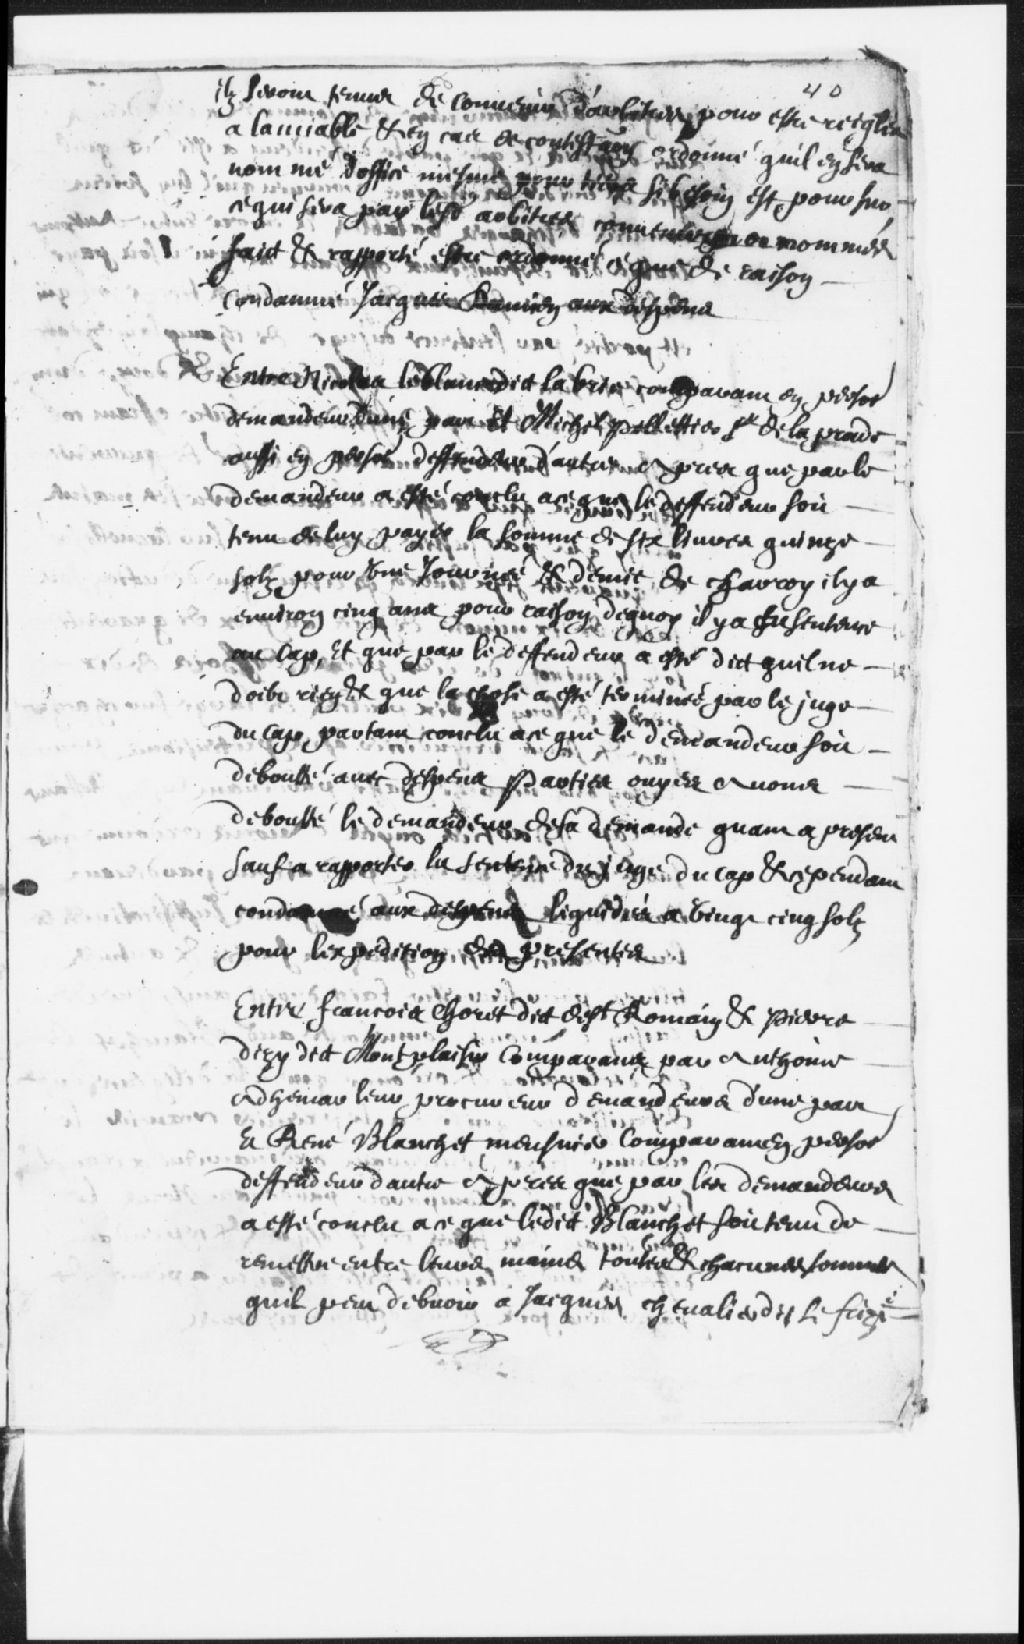 40
Ilz seront tenus de convenir d'arbitres pour estre reiglez
a lamiable & en cas de contestaon ordonné quil en sera
nommé d'office mesme pour tiers si besoin est, pour sur
ce qui sera par lesd arbitres convenus ou nommés
fait & rapporté estre ordonné ce que de raison
Condamné Jacques aux despens
Entre Nicolas leblanc dict la brie comparant en persoe
demandeur d'une part Et Michel pelletier sr de la prade
aussi en persoe deffendeur d'autre apres que par le
demandeur a esté conclu a ce que le deffendeur soit
tenu de luy payer la somme de six livres quinze
solz pour une Journeé & demie de charroy il y a
environ cinq ans pour raison dequoy il y a eu sentence
au Cap, Et que par le deffendeur a esté dict quil ne
doibt rien & que la chose a esté terminée par le juge
du Cap partant conclu a ce que le demandeur soit
deboutté avec despens Parties ouyes avons
deboutté le demandeur de sa demande quant a present
sauf a rapporter la sentence du juge du cap & cependant
condamné aux despens liquidés a vingt cinq solz
pour lexpedition des presentes
Entre francois Choret dit de st Romain & pierre
dizy dit Montplaisir Comparans par Anthoine
Adhemar leur procureur demandeurs d'une part
Et René Blanchet meusnier Comparant en persoe
deffendeur dautre apres que par les demandeurs
a esté conclu a ce que ledict Blanchet soit tenu de
remettre entre leurs mains touttes & chacunes sommes
quil peut debvoir a Jacques chevalier dit Le